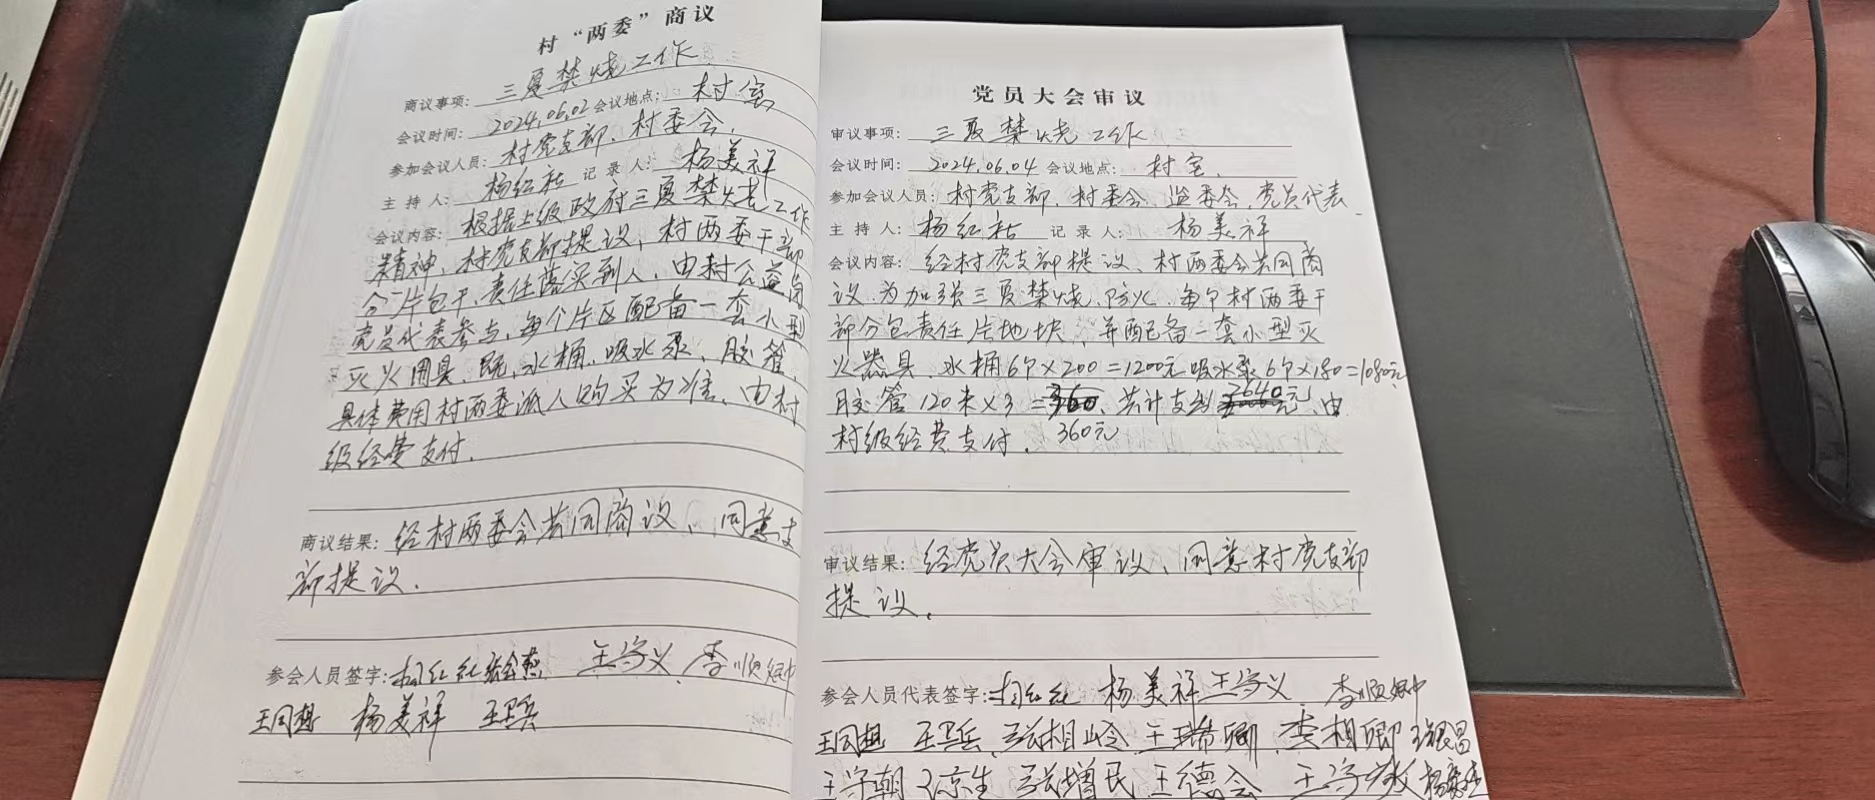 村“两委”商议
商议事项: 三夏禁烧工作
会议时间: 2024.06.02 会议地点: 村室
参加会议人员: 村党支部、村委会.
主持人: 杨红社 记录人: 杨美祥
会议内容: 根据上级政府三夏禁烧工作
精神、村党支部提议, 村两委干部
分片包干、责任落实到人、由村公益岗
党员代表参与, 每个片区配备一套小型
灭火用具, 既, 水桶、吸水泵、胶管
具体费用村两委派人购买为准、由村
级经费支付.
商议结果: 经村两委会共同商议、同意支
部提议.
参会人员签字: 王守义
杨美祥
党员大会审议
审议事项: 三夏禁烧工作
会议时间: 2024.06.04 会议地点: 村室.
参加会议人员: 村党支部、村委会、监委会、党员代表
主持人: 杨红社 记录人: 杨美祥
会议内容: 经村党支部提议、村两委会共同商
议、为加强三夏禁烧、防火、每个村两委干
部分包责任片地块、并配备一套小型灭
火器具、水桶6个×200=1200元 吸水泵6个×180=1080元
胶管120米×3=360、共计支出2640元、由
村级经费支付. 360元
审议结果: 经党员大会审议、同意村党支部
提议.
参会人员代表签字: 杨美祥 王守义
王瑞卿 李相卿
王守朝 张增民 王德会